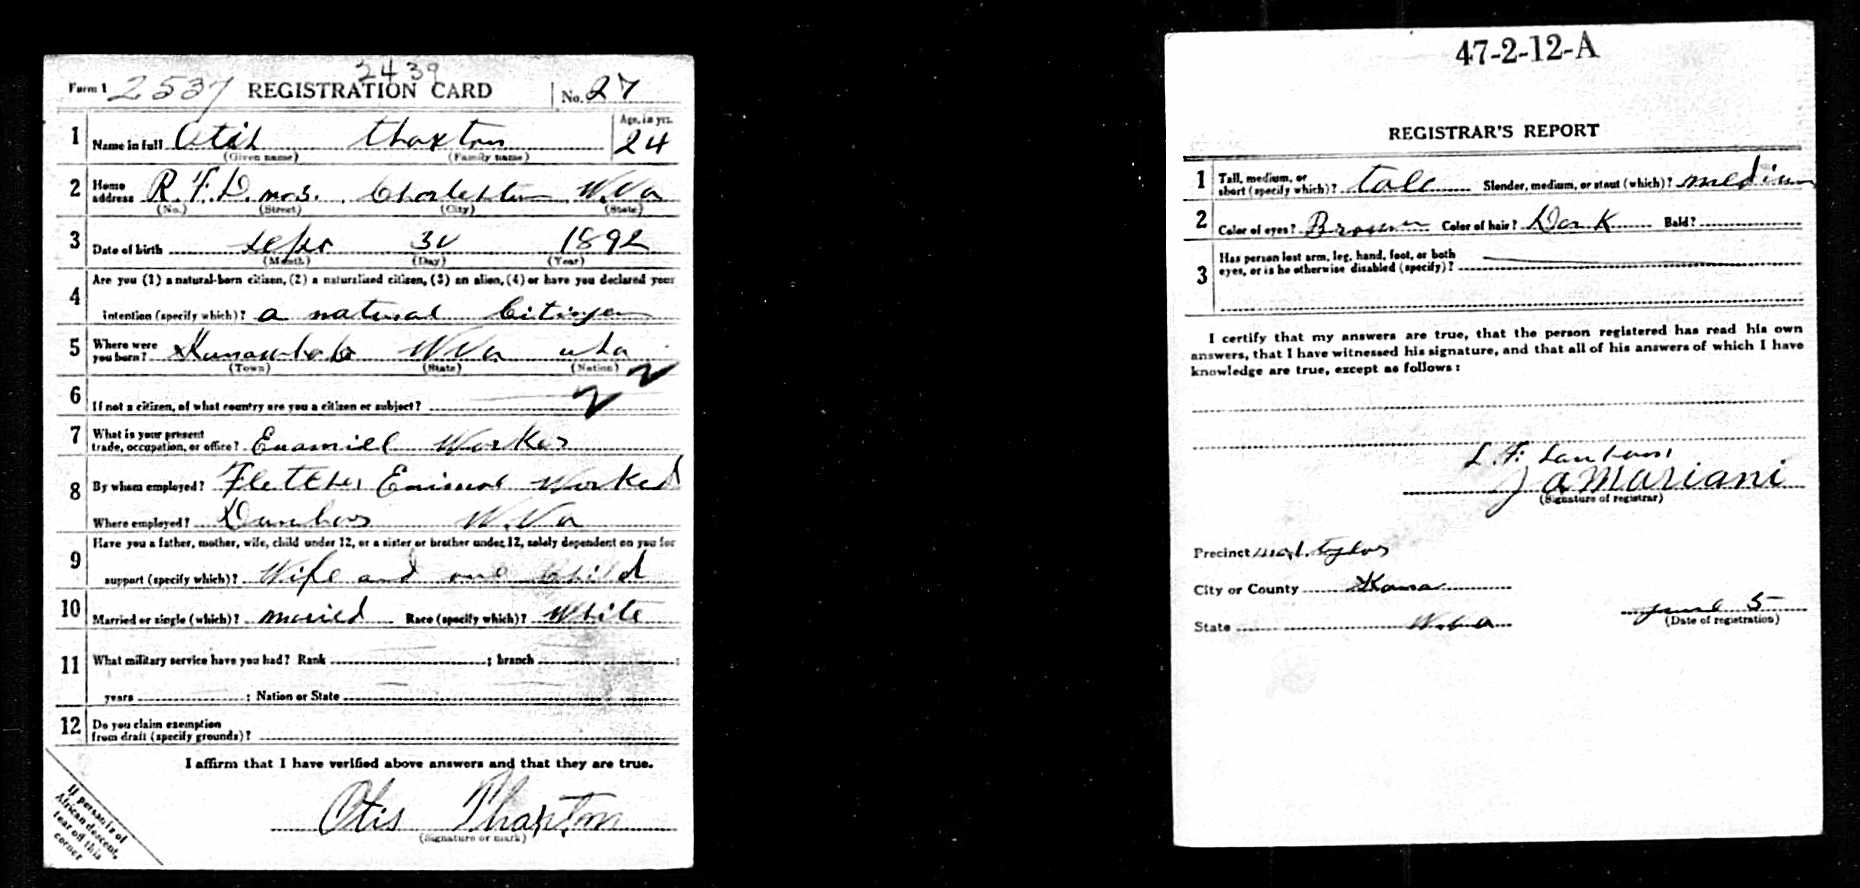 2439
Form 1 2537 REGISTRATION CARD No. 27
Age, in yrs.
1 Name in full Otis Thaxton 24
(Given name) (Family name)
2 Home address R.F.D. no 3. Charleston W.Va
(No.) (Street) (City) (State)
3 Date of birth Sept 30 1892
(Month) (Day) (Year)
4 Are you (1) a natural-born citizen, (2) a naturalized citizen, (3) an alien, (4) or have you declared your
intention (specify which)? a natural Citizen
5 Where were you born? W Va
(Town) (State) (Nation)
6 If not a citizen, of what country are you a citizen or subject?
7 What is your present
trade, occupation, or office? Enamiel Worker
8 By whom employed? Fletcher Worked
Where employed? Dunbar W.Va
9 Have you a father, mother, wife, child under 12, or a sister or brother under 12, solely dependent on you for
support (specify which)? Wife and one Child
10 Married or single (which)? Maried Race (specify which)? White
11 What military service have you had? Rank ; branch ;
years ; Nation or State
12 Do you claim exemption
from draft (specify grounds)?
I affirm that I have verified above answers and that they are true.
Otis Thaxton
(Signature or mark)
If person is of
African descent,
tear off this
corner
47-2-12-A
REGISTRAR'S REPORT
1 Tall, medium, or
short (specify which)? tall Slender, medium, or stout (which)? medium
2 Color of eyes? Brown Color of hair? Dark Bald?
3 Has person lost arm, leg, hand, foot, or both
eyes, or is he otherwise disabled (specify)?
I certify that my answers are true, that the person registered has read his own
answers, that I have witnessed his signature, and that all of his answers of which I have
knowledge are true, except as follows:
L. F.
J A Mariani
(Signature of registrar)
Precinct
City or County Kana
State W.Va June 5
(Date of registration)